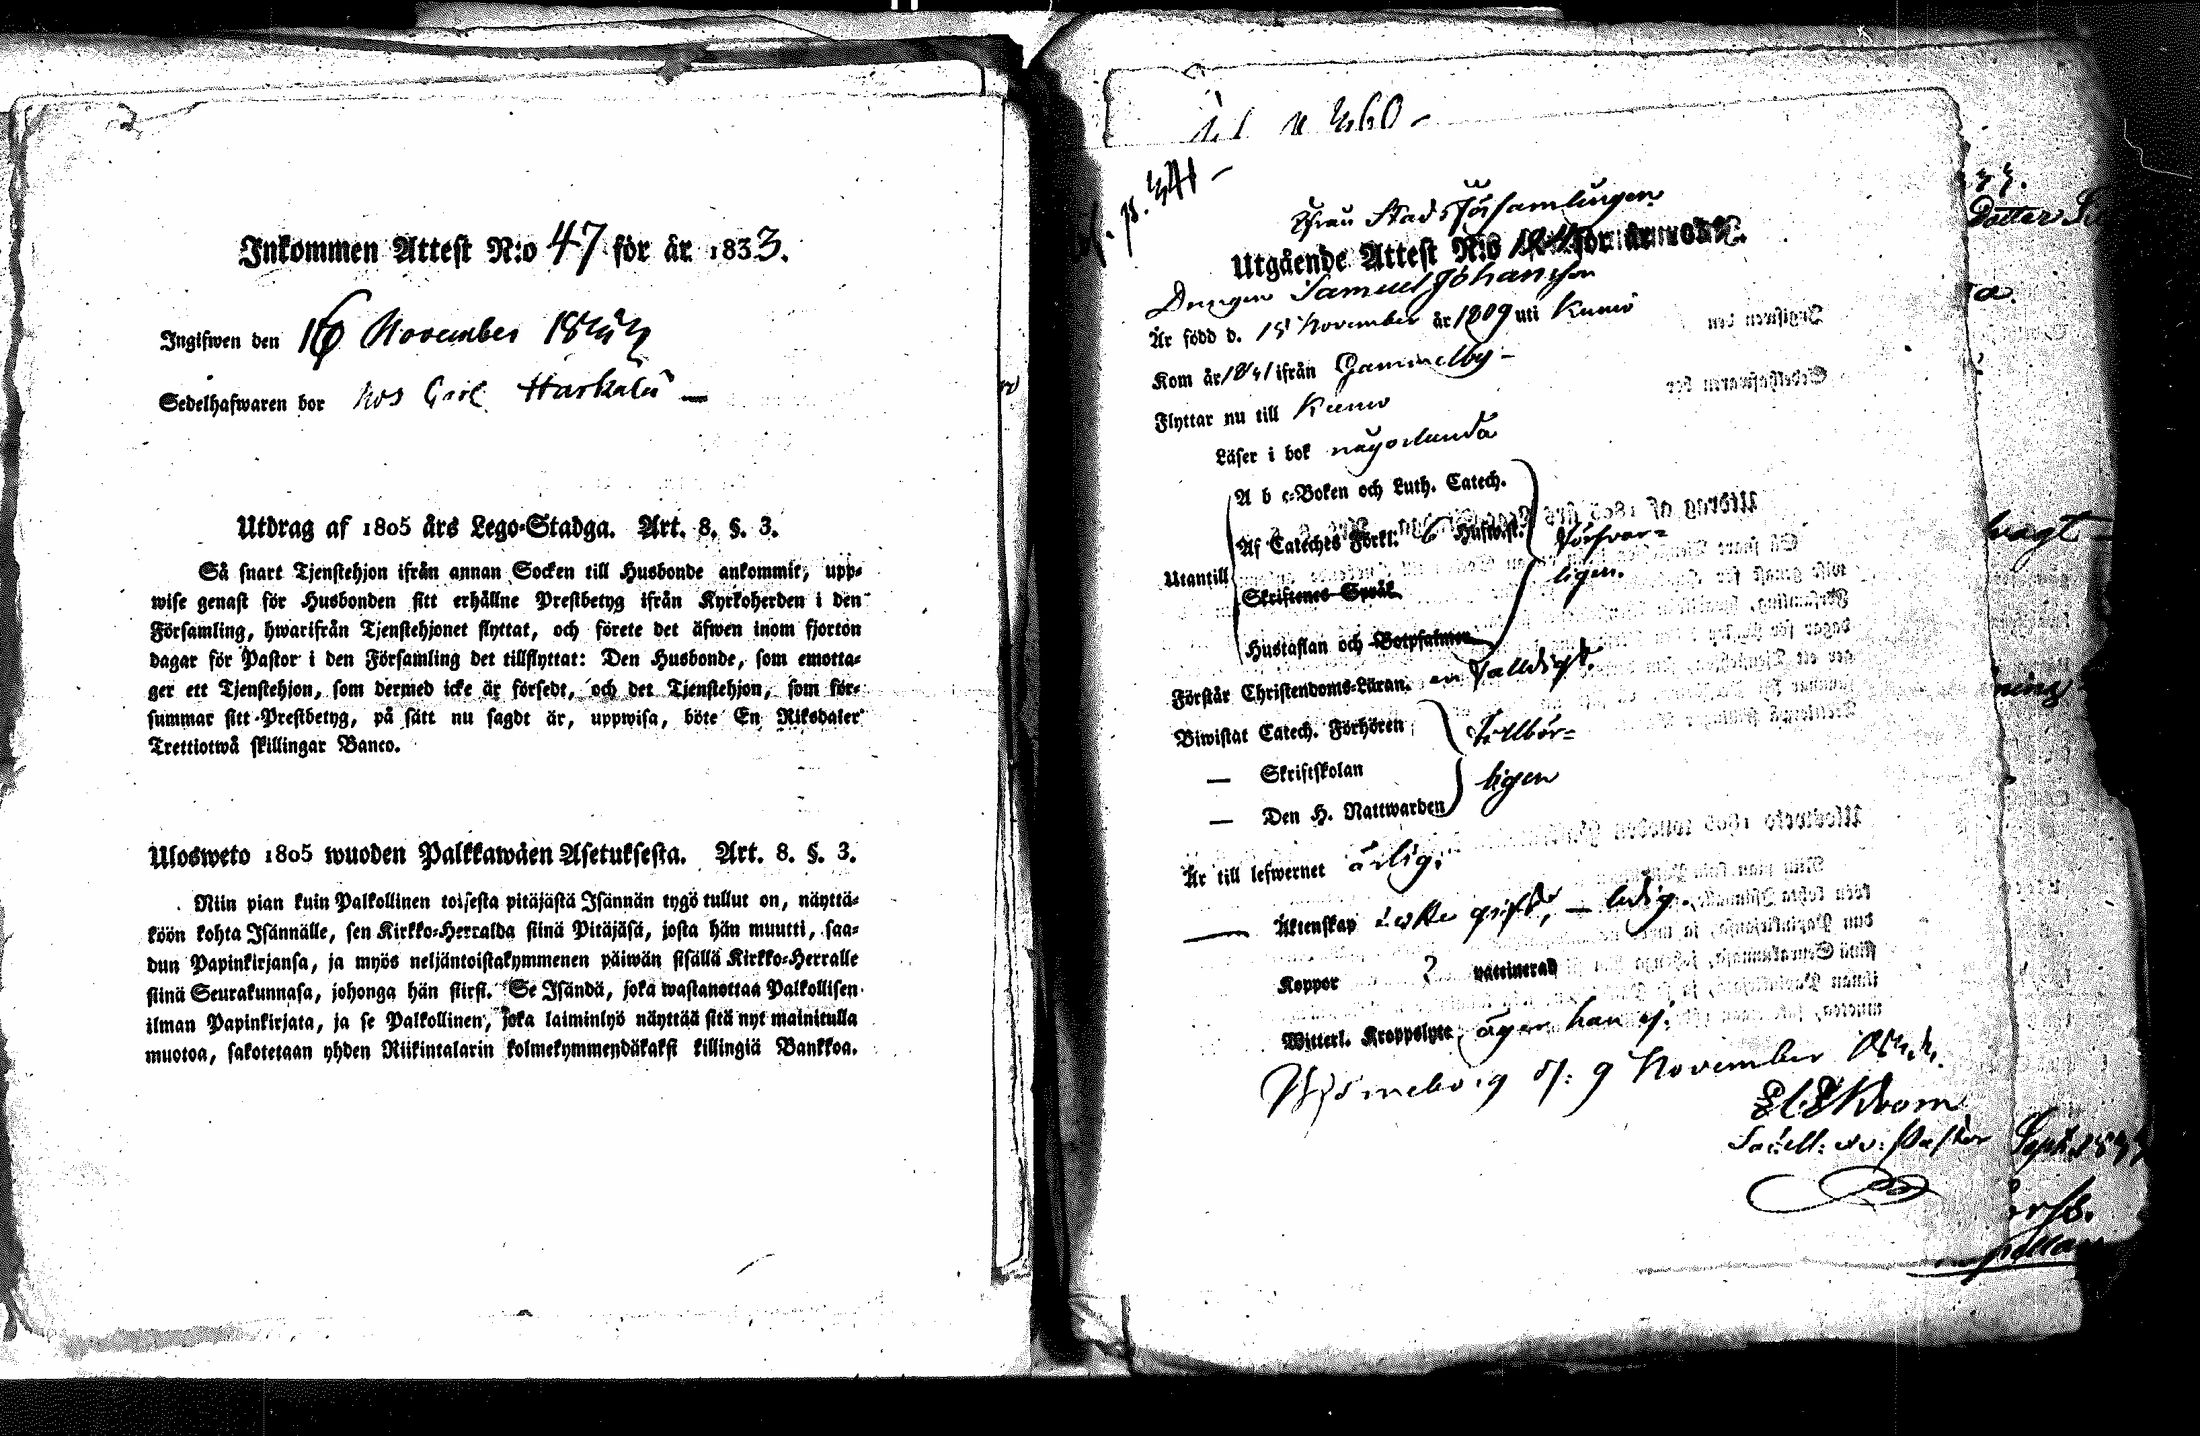 Inkommen Attest N:o 47 för år 1833.
Ingifwen den 16 November 1833
Sedelhafwaren bor hos Carl Harkälä
Utdrag af 1805 års Lego-Stadga. Art. 8. §. 3.
Så snart Tjenstehjon ifrån annan Socken till Husbonde ankommit, upp-
wise genast för Husbonden sitt erhållne Prestbetyg ifrån Kyrkoherden i den
Församling, hwarifrån Tjenstehjonet flyttat, och förete det äfwen inom fjorton
dagar för Pastor i den Församling det tillflyttat: Den Husbonde, som emotta-
ger ett Tjenstehjon, som dermed icke är försedt, och det Tjenstehjon, som för-
summar sitt Prestbetyg, på sätt nu sagdt är, uppwisa, böte En Riksdaler
Trettiotwå skillingar Banco.
Ulosweto 1805 wuoden Palkkawäen Asetuksesta. Art. 8. §. 3.
Niin pian kuin Palkollinen toisesta pitäjästä Isännän tygö tullut on, näyttä-
köön kohta Isännälle, sen Kirkko-Herralda siinä Pitäjäsä, josta hän muutti, saa-
dun Papinkirjansa, ja myös neljäntoistakymmenen päiwän sisällä Kirkko-Herralle
siinä Seurakunnasa, johonga hän siirsi. Se Isändä, joka wastanottaa Palkollisen
ilman Papinkirjata, ja se Palkollinen, joka laiminlyö näyttää sitä nyt mainitulla
muotoa, sakotetaan yhden Riikintalarin kolmekymmendäkaksi killingiä Bankkoa.
Från Stads Församlingen
Utgående Attest N:o för år
Drengen Samuel Johansson
Är född d. 15 November år 1809 uti Kumo
Kom år ifrån Gammelby
Flyttar nu till Kumo
Läser i bok någorlunda
A b c-Boken och Luth. Catech.
Af Cateches Förkl. 6 Hufwst.
Försvar-
ligen.
Utantill
Skriftenes Språk
Hustaflan och Botpsalmer
Förstår Christendoms-Läran. enfalldigt.
Biwistat Catech. Förhören
Tillbör-
— Skriftskolan
ligen
— Den H. Nattwarden
Är till lefwernet ärlig.
— Äktenskap icke gift, — ledig.
Koppor ? vaccinerad
Witterl. Kroppslyte äger han ej.
Björneborg d: 9 November